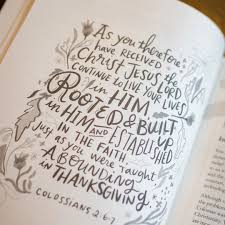 As you therefore
have received
Christ Jesus the Lord
continue to live your lives
in Him
Rooted & Built
up
in Him and established
in the faith
Just as you were taught
abounding
in
thanksgiving.
Colossians 2:6-7